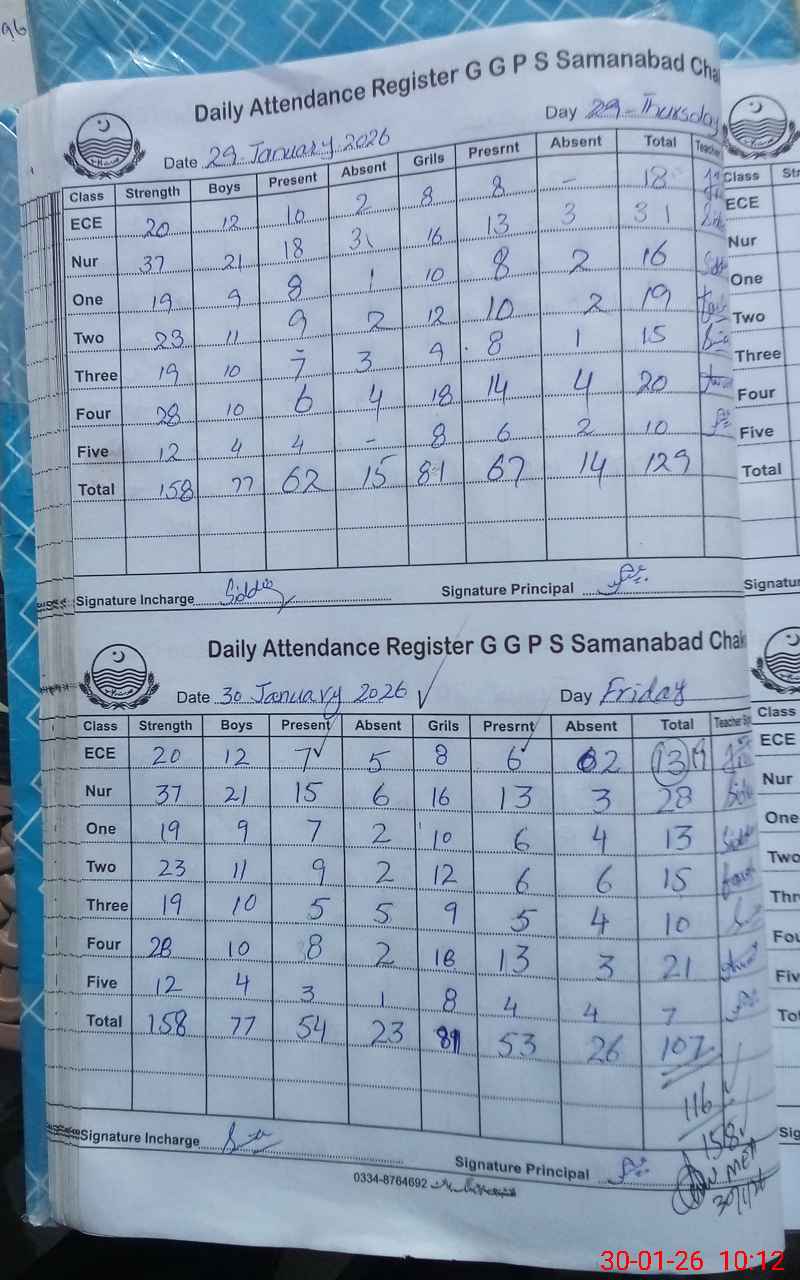 96
Daily Attendance Register G G P S Samanabad Cha
Date 29-January 2026 Day 29-Thursday
Class Strength Boys Present Absent Grils Presrnt Absent Total Teacher
ECE 20 12 10 2 8 8 - 18
Nur 37 21 18 3 16 13 3 31
One 19 9 8 1 10 8 2 16
Two 23 11 9 2 12 10 2 19
Three 19 10 7 3 9 8 1 15
Four 28 10 6 4 18 14 4 20
Five 12 4 4 - 8 6 2 10
Total 158 77 62 15 81 67 14 129
Signature Incharge Signature Principal
Daily Attendance Register G G P S Samanabad Chak
Date 30 January 2026 ✓ Day Friday
Class Strength Boys Present Absent Grils Presrnt Absent Total Teacher
ECE 20 12 7✓ 5 8 6✓ 2 13
Nur 37 21 15 6 16 13 3 28
One 19 9 7 2 10 6 4 13
Two 23 11 9 2 12 6 6 15
Three 19 10 5 5 9 5 4 10
Four 28 10 8 2 18 13 3 21
Five 12 4 3 1 8 4 4 7
Total 158 77 54 23 81 53 26 107
116
158
Signature Incharge Signature Principal
MEA
30/1/26
0334-8764692
Class Str
ECE
Nur
One
Two
Three
Four
Five
Total
Signatur
Class
ECE
Nur
One
Two
Thr
Fou
Fiv
To
Sig
30-01-26 10:12